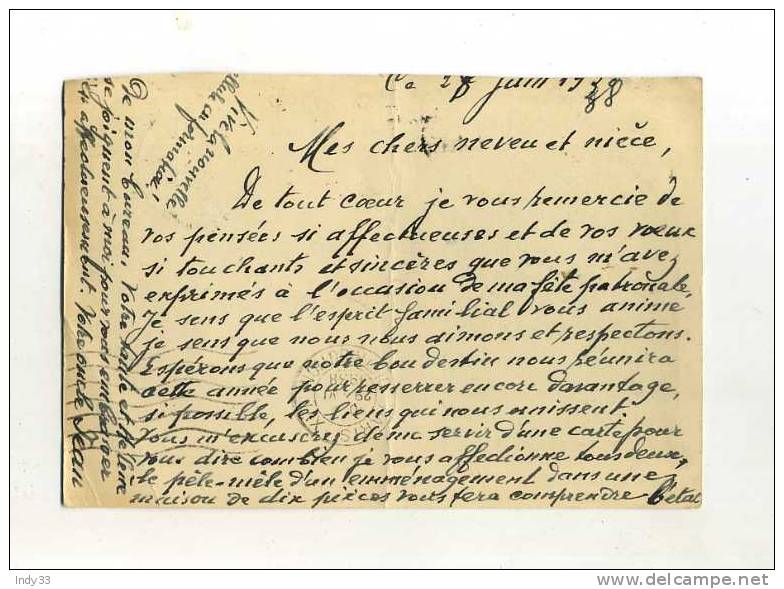 Ce 28 juin 1938
38
Mes chers neveu et nièce,
De tout cœur je vous remercie de
vos pensées si affectueuses et de vos vœux
si touchants et sincères que vous m'avez
exprimés à l'occasion de ma fête patronale.
Je sens que l'esprit familial vous anime
je sens que nous nous aimons et respectons.
Espérons que notre bon destin nous réunira
cette année pour resserrer encore davantage,
si possible, les liens qui nous unissent.
Vous m'excuserez de me servir d'une carte pour
vous dire combien je vous affectionne tous deux,
le pêle-mêle d'un emménagement dans une
maison de dix pièces vous fera comprendre l'état
De mon bureau. Votre tante et Hélène
se joignent à moi pour vous embrasser
affectueusement. Votre oncle Jean
Vive la nouvelle
cellule en
formation!
Indy33
delcampe.net